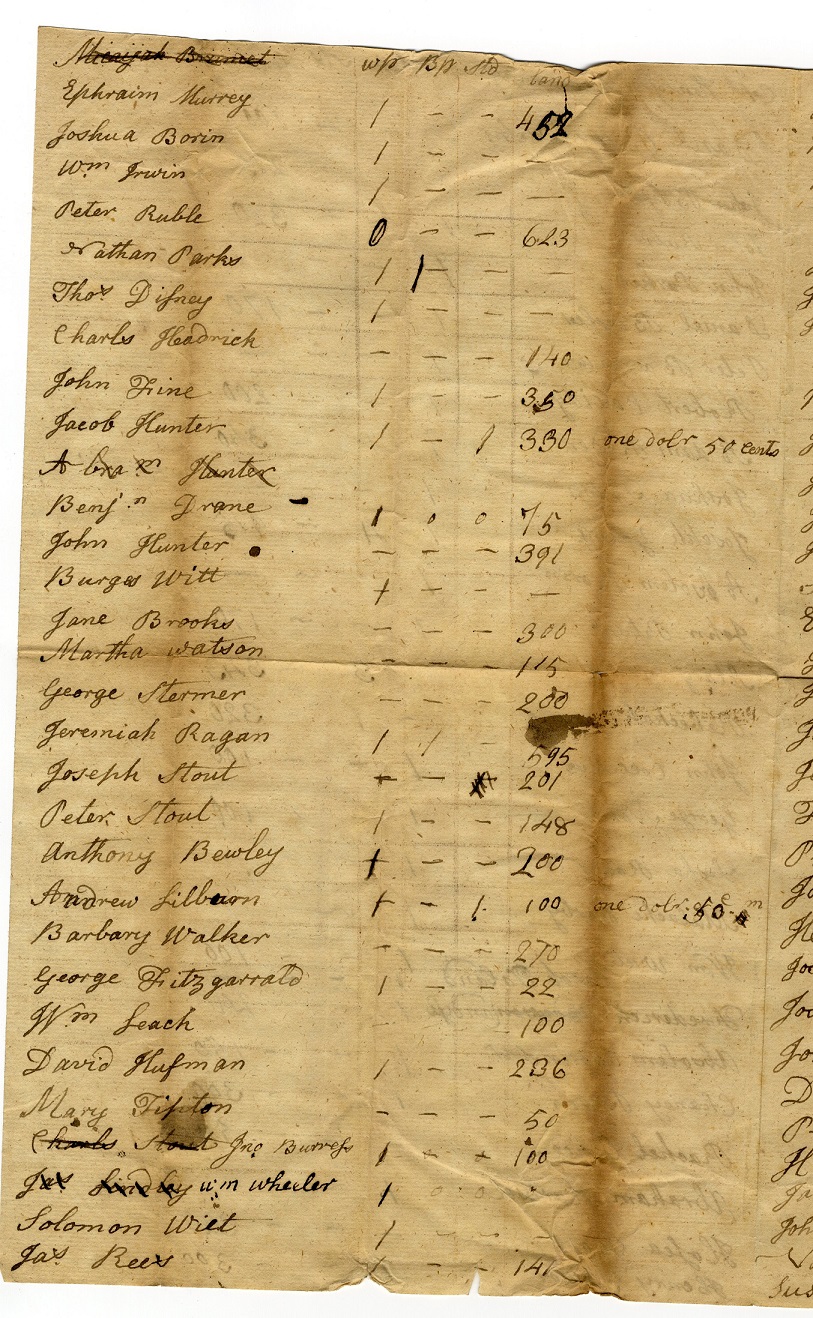 Micajah wp Bp Std land
Ephraim Murrey 1 - - 452
Joshua Borin 1 - - -
Wm Irwin 1 - - -
Peter Ruble 0 - - 623
Nathan Parks 1 1 - -
Thos Disney 1 - - -
Charls Headrick - - - 140
John Fine 1 - - 350
Jacob Hunter 1 - 1 330 one dolr 50 cents
Abram Hunter
Benjn Drane - 1 0 0 75
John Hunter - - - 391
Burges Witt + - - -
Jane Brooks - - - 300
Martha Watson - - - 115
George Stermer - - - 200
Jeremiah Ragan 1 1 - 595
Joseph Stout + - 201
Peter Stout 1 - - 148
Anthony Bewley + - - 200
Andrew Lilburn + - 1 100 one dolr 50
Barbary Walker - - - 270
George Fitzgarrald 1 - - 22
Wm Leach - - - 100
David Hufman 1 - - 236
Mary Tipton - - - 50
Charls Stout Jno Burress 1 + + 100
Jas Lindley wm wheeler 1 0 0
Solomon Wilt 1 - - -
Jas Rees + - - 141